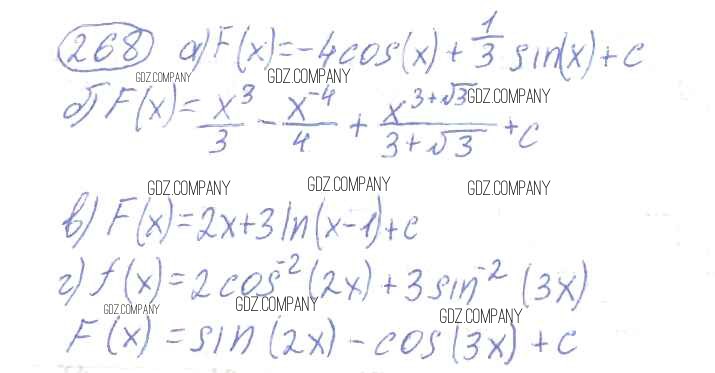 268 а) F(x)=-4cos(x)+1/3 sin(x)+c
GDZ.COMPANY GDZ.COMPANY
б) F(x)=x^3/3-x^-4/4+x^(3+√3)/(3+√3)+c
GDZ.COMPANY
GDZ.COMPANY GDZ.COMPANY GDZ.COMPANY
в) F(x)=2x+3ln(x-1)+c
г) f(x)=2cos^-2(2x)+3sin^-2(3x)
GDZ.COMPANY GDZ.COMPANY GDZ.COMPANY
F(x)=sin(2x)-cos(3x)+c